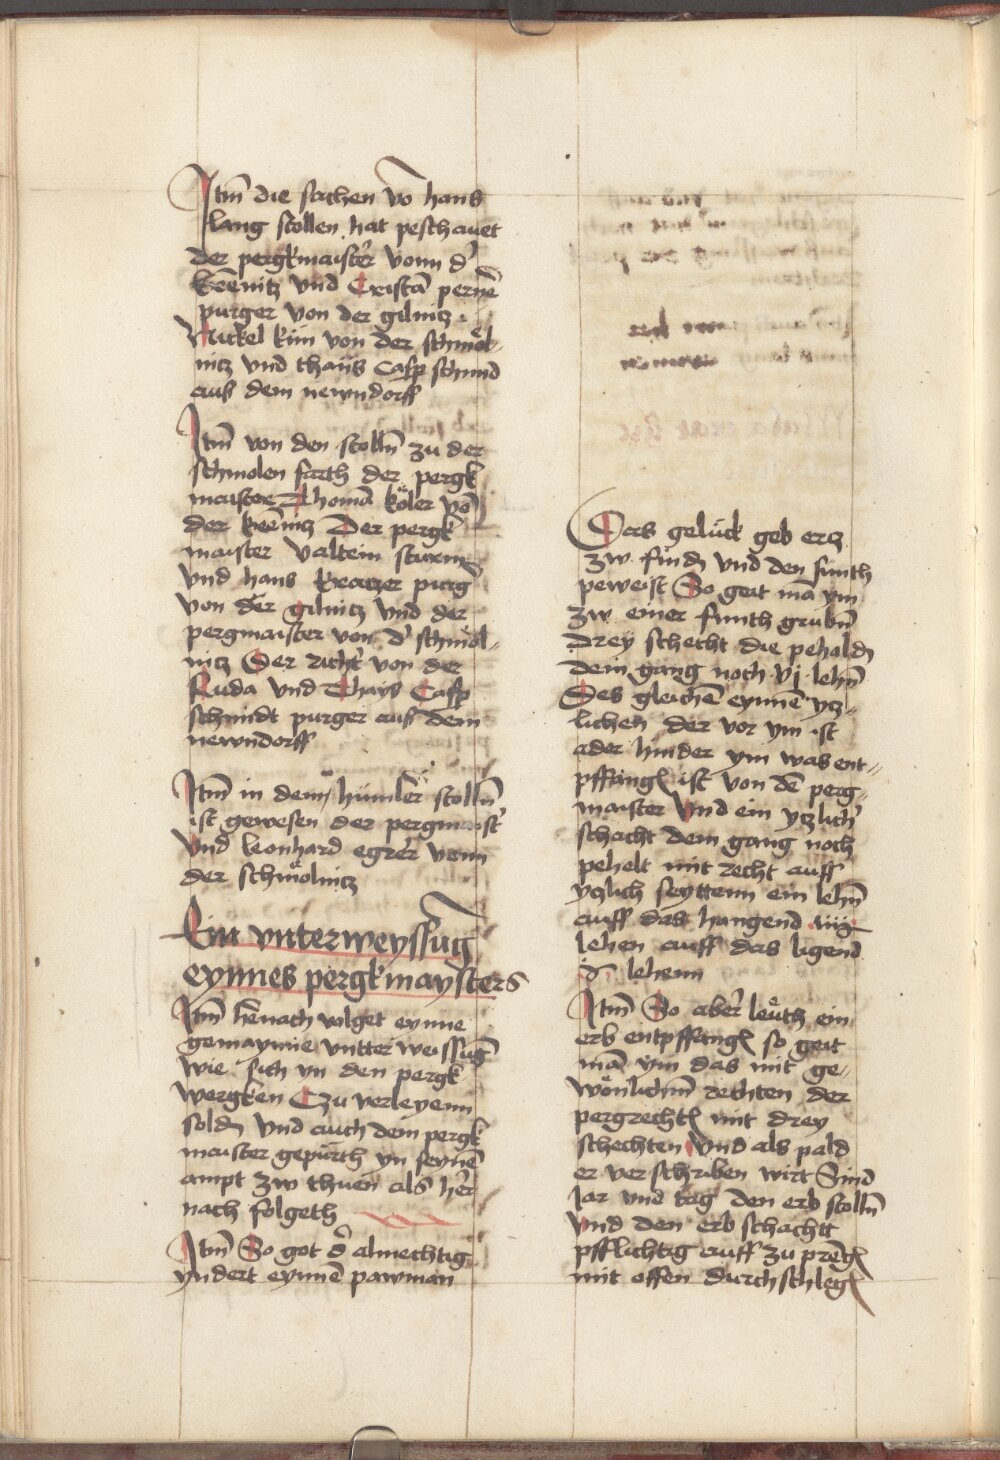 Itm̄ die sachen vō hans
lang stollen hat peschauet
der pergkmaister vonn d'
kremnitz vnd Cristā pernē
purger von der gilnitz
Nickel kün von der schmöl-
nitz vnd thaus Casp schmid
aus dem newndorff
Itm̄ von den stolln̄ zu der
schmolen farth der pergk
maister Thomā köler vō
der kremnitz Der pergk
maister valtein
vnd hans kratzer purg
von der gilnitz vnd der
pergmaister von d' schmöl-
nitz Der richt' von der
Ruda vnd Thays Casp
schmidt purger aus dem
newndorff
Itm̄ in dem himler stolln̄
ist gewesen der pergmaist'
vnd leonhard egrer vonn
der schmölnitz
Ein vnterweyssūg
eynnes pergkmaysters
Itm̄ hernach volget eynne
gemaynne vntterweissūg
wie sich yn den pergk
wergken Czu verleyenn
solden vnd auch dem pergk
maister gepurth yn seynē
ampt zw thuen als her
nach folgeth
Itm̄ So got d' almechtig
yndert eynnē pawman
Das gelück geb ertz
zw finden vnd den funth
peweist So geit mā ym
zw einer funth grubn̄
drey schecht die pehalden
dem gang noch vj lehn̄
Des gleichē eynnē ytz-
lichen der vor ym ist
ader hinder ym was ent-
pffangen ist von dē perg-
maister Vnd ein ytzlich'
schacht dem gang noch
pehelt mit recht auff
ytzlich seyttenn ein lehn̄
auff das hangend
lehen auff das ligend
lehenn
Itm̄ So aber leuth ein
erb entpffangen so geit
mā ym das mit ge-
wönlichn̄ rechten der
pergrechten mit drey
schechten Vnd als pald
er verschriben wirt Sind
Jar vnd tag den erb stolln̄
Vnd den erb schachtt
pfflichtig auff zu prengen
mit offen durchschlegen